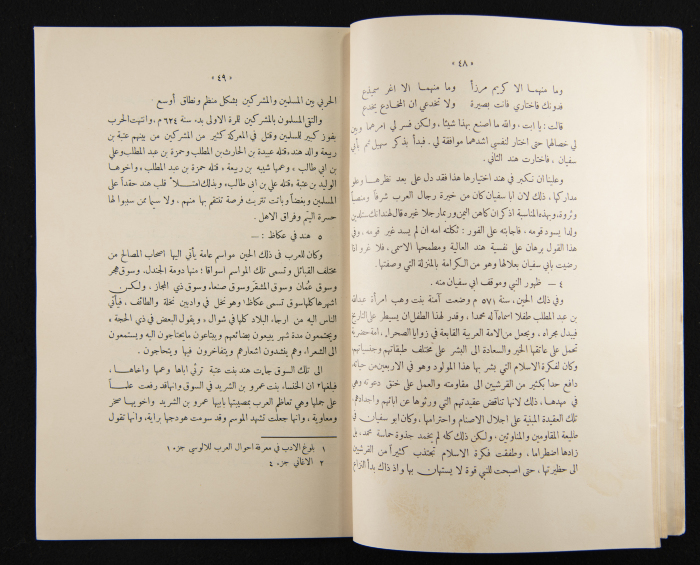 « ٤٨ »
وما منهما الا كريم مرزأ وما منهما الا اغر سميذع
فدونك فاختاري فانت بصيرة ولا تخدعي ان المخادع يخدع
قالت : يا ابت ، والله ما اصنع بهذا شيئا ، ولكن فسر لي امرهما وبين
لي خصالهما حتى اختار لنفسي اشدهما موافقة لي . فبدأ بذكر سهيل ثم بأبي
سفيان . فاختارت هند الثاني .
وعلينا ان نكبر في هند اختيارها هذا فقد دل على بعد نظرها وعلو
مداركها ، ذلك لان ابا سفيان كان من خيرة رجال العرب شرفاً ومنصباً
وثروة . وبهذه المناسبة اذكر ان كاهن اليمن وربما رجلا غيره قال لهند انك ستلدين
ولدا يسود قومه ، فاجابته على الفور : ثكلته امه ان لم يسد غير قومه . وفي
هذا القول برهان على نفسية هند العالية ومطمحها الاسمى ، فلا غرو اذا
رضيت بابي سفيان بعلا لها وهو من الكرامة بالمنزلة التي وصفتها .
٤ — ظهور النبي وموقف ابي سفيان منه .
وفي ذلك الحين ، سنة ٥٧١ م وضعت آمنة بنت وهب امرأة عبدالله
بن عبد المطلب طفلا اسماه آله محمدا ، وقدر لهذا الطفل ان يسيطر على التاريخ
فيبدل مجراه ، ويجعل من الامة العربية القابعة في زوايا الصحراء ، امة حضرية
تحمل على عاتقها الخير والسعادة الى البشر على مختلف طبقاتهم وجنسياتهم .
وكان لفكرة الاسلام التي بشر بها هذا المولود وهو في الاربعين من حياته
دافع حدا بكثير من القرشيين الى مقاومته والعمل على خنق دعوته وهي
في مهدها ، ذلك لانها تناقض عقيدتهم التي ورثوها عن ابائهم واجدادهم ،
تلك العقيدة المبنية على اجلال الاصنام واحترامها ، وكان ابو سفيان في
طليعة المقاومين والمناوئين . ولكن ذلك كله لم يخمد جذوة حماسة محمد ، بل
زادها اضطراما ، وطفقت فكرة الاسلام تجتذب كثيراً من القرشيين
الى حظيرتها ، حتى اصبحت للنبي قوة لا يستهان بها واذ ذاك بدأ النزاع
« ٤٩ »
الحربي بين المسلمين والمشركين بشكل منظم ونطاق أوسع .
والتقى المسلمون بالمشركين للمرة الاولى بدء سنة ٦٢٤ م ، وانتهت الحرب
بفوز كبير للمسلمين وقتل في المعركة كثير من المشركين من بينهم عتبة بن
ربيعة والد هند ، قتله عبيدة بن الحارث بن المطلب وحمزة بن عبد المطلب وعلي
بن ابي طالب ، وعمها شيبه بن ربيعة ، قتله حمزة بن عبد المطلب ، واخوها
الوليد بن عتبة ، قتله علي بن ابي طالب ، وبذلك امتلأ قلب هند حقداً على
المسلمين وبغضاً وباتت تتربت فرصة تنتقم بها منهم ، ولا سيما ممن سببوا لها
حسرة اليتم وفراق الاهل .
٥ هند في عكاظ : —
وكان للعرب في ذلك الحين مواسم عامة يأتي اليها اصحاب المصالح من
مختلف القبائل وتسمى تلك المواسم اسواقا ؛ منها دومة الجندل ، وسوق هجر
وسوق عُمان وسوق المشقر وسوق صنعاء ، وسوق ذي المجاز ، ولكن
اشهرها كلها سوق تسمى عكاظ ١ وهو نخل في وادٍ بين نخلة والطائف ، فيأتي
الناس اليه من ارجاء البلاد كلها في شوال ، ويقول البعض في ذي الحجة ،
ويجتمعون مدة شهر يبيعون بضائعهم ويبتاعون ما يحتاجون اليه ويستمعون
الى الشعراء ، وهم ينشدون اشعارهم ويتفاخرون فيها ويتحاجون .
الى تلك السوق جاءت هند بنت عتبة ترثي اباها وعمها واخاها ،
فبلغها ٢ ان الخنساء بنت عمرو بن الشريد في السوق وانها قد رفعت علماً
على جملها وهي تعاظم العرب بمصيبتها بابيها عمرو بن الشريد واخويها صخر
ومعاوية ، وانها جعلت تشهد الموسم وقد سومت هودجها براية ، وانها تقول
١ بلوغ الادب في معرفة احوال العرب للآلوسي جزء ١
٢ الاغاني جزء ٤